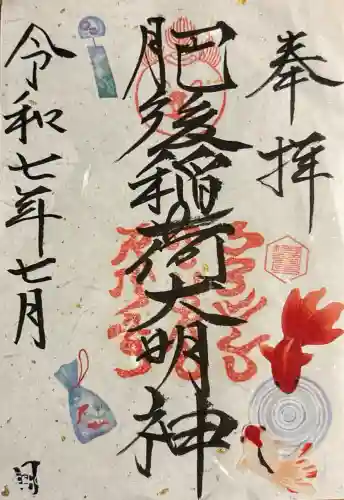 奉拝
肥後稲荷大明神
令和七年七月